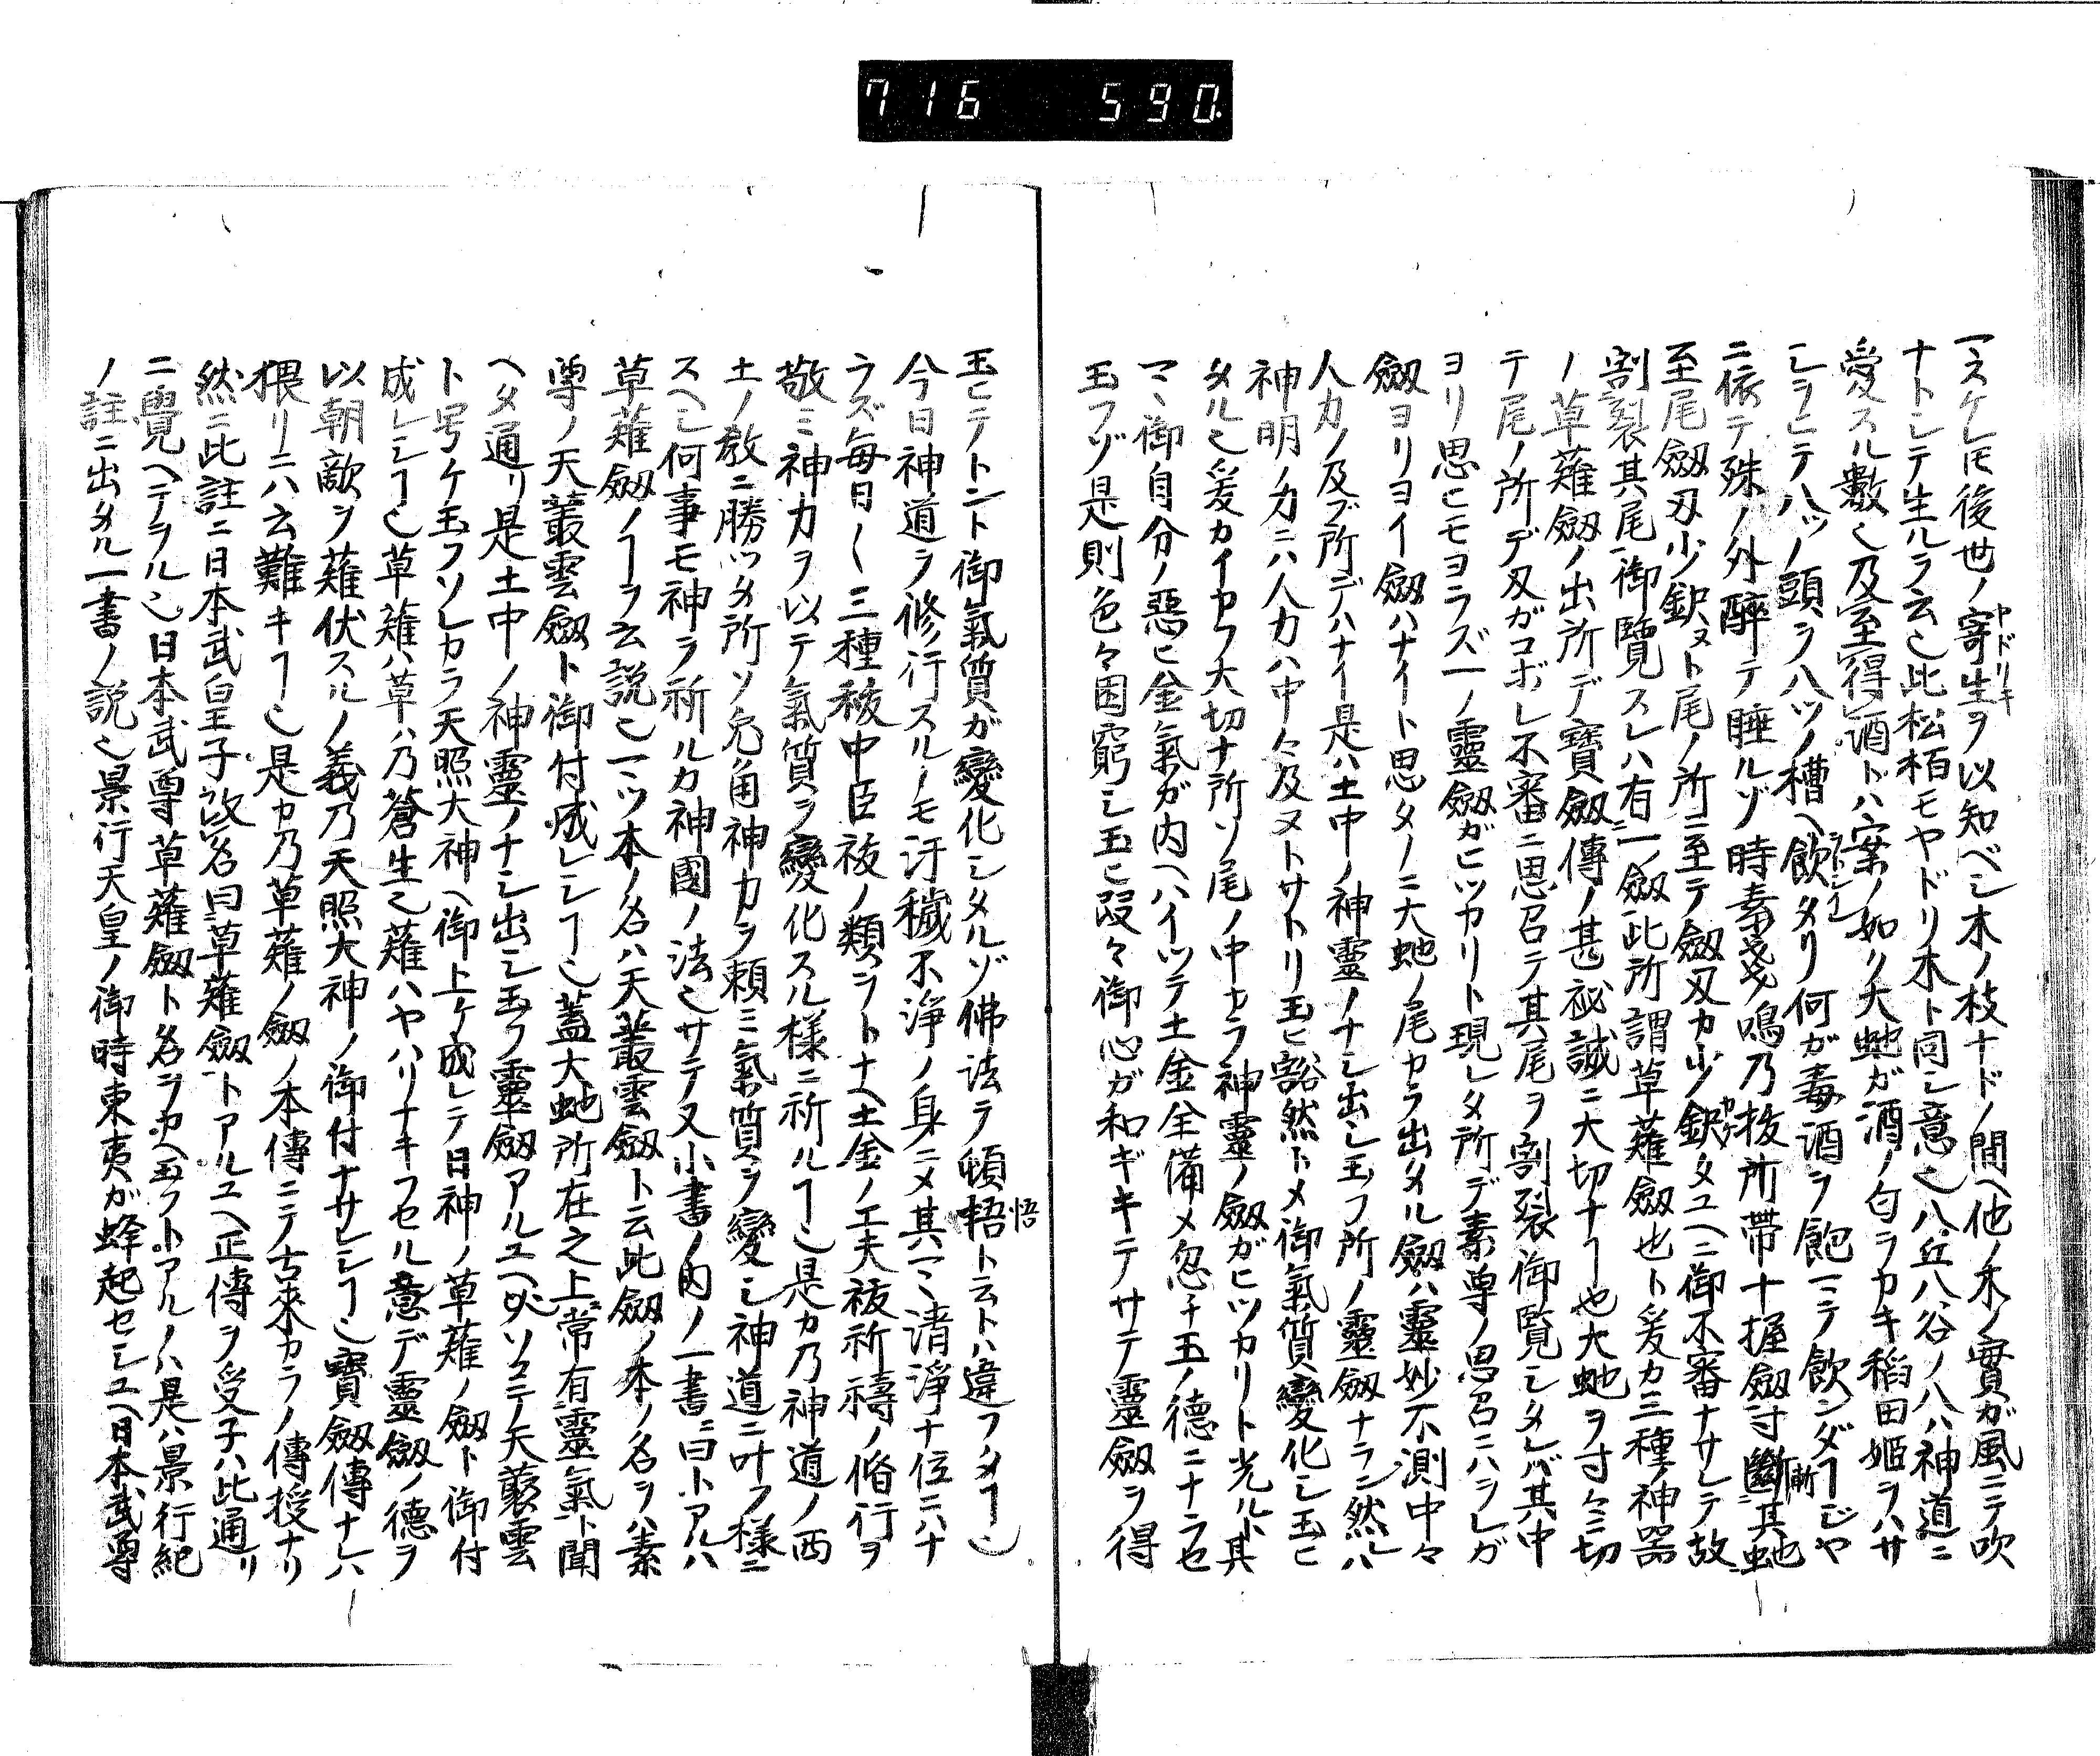 716 590.
一スケレ𪜈後世ノ寄生ヲ以知ベシ木ノ枝ナドノ間ヘ他ノ木ノ實ガ風ニテ吹
ヤドリキ
ナトシテ生ルヲ云也此松栢モヤドリ木ト同シ意也八丘八谷ノ八ハ神道ニ
愛スル數也及至得酒トハ案ノ如リ大虵ガ酒ノ匂ヲカキ稲田姫ヲハサ
シヲヒテ八ツノ頭ヲ八ツノ槽ヘ飲タリ何ガ毒酒ヲ飽マテ飲ンダヿジや
ニ依テ殊ノ外醉テ睡ルゾ時素戔嗚乃抜所帯十握劔寸斷其虵
斬
至尾劔刄少𨥧ヌト尾ノ所ニ至テ劔刄カ少𨥧タユヘニ御不審ナサレテ故
割裂其尾御覽スレハ有一劔此所謂草薙劔也ト爰カ三種ノ神器
ノ草薙劔ノ出所デ寶劔傳ノ甚祕誠ニ大切ナヿ也大虵ヲ寸々ニ切
テ尾ノ所デ刄ガコボレ不審ニ思召テ其尾ヲ割裂御覧シタレバ其中
ヨリ思ヒモヨラズ一ノ靈劔ガヒツカリト現レタ所デ素尊ノ思召ニハヲレガ
劔ヨリヨイ劔ハナイト思タノニ大虵ノ尾カラ出タル劔ハ靈妙不測中々
人力ノ及ブ所デハナイ是ハ土中ノ神靈ノナシ出シ玉フ所ノ靈劔ナラン然レハ
神明ノ力ニハ人力ハ中々及ヌトサトリ玉ヒ豁然トメ御氣質變化シ玉ヒ
タル也爰カイカフ大切ナ所ソ尾ノ中カラ神靈ノ劔ガヒツカリト光ルト其
マヽ御自分ノ惡ヒ金氣ガ内ヘハイツテ土金全備メ忽チ玉ノ德ニナラセ
玉フゾ是則色々困窮シ玉ヒ段々御心ガ和ギキテサテ靈劔ヲ得
玉ヒテトント御氣質ガ變化シタルゾ佛法テ頓牾ト云トハ違フタヿ也
悟
今日神道ヲ修行スルノモ汙穢不浄ノ身ニメ其マヽ清淨ナ位ニハナ
ラズ毎日〱三種祓中臣祓ノ類ヲトナヘ土金ノ工夫祓祈禱ノ脩行ヲ
敬ミ神力ヲ以テ氣質ヲ變化スル様ニ祈ルヿ也是カ乃神道ノ西
土ノ教ニ勝ツタ所ソ兎角神力ヲ頼ミ氣質ヲ變シ神道ニ叶フ様ニ
スヘシ何事モ神ヲ祈ルカ神國ノ法也サテ又小書ノ内ノ一書ニ曰トアルハ
草薙劔ノヿヲ云説也一ツ本ノ名ハ天叢雲劔ト云此劔ノ本ノ名ヲハ素
尊ノ天叢雲劔ト御付成レシヿ也蓋大虵所在之上常有靈氣ト聞
ヘタ通リ是土中ノ神靈ノナシ出シ玉フ靈劔アルユヘ必ソコニテ天叢雲
ト号ケ玉フソレカラ天照大神ヘ御上ケ成レテ日神ノ草薙ノ劔ト御付
成レシヿ也草薙ハ草ハ乃蒼生也薙ハヤハリナキフセル意デ靈劔ノ德ヲ
以朝敵ヲ薙伏スルノ義乃天照大神ノ御付ナサレシヿ也寶劔傳ナレハ
猥リニハ云難キヿ也是カ乃草薙ノ劔ノ本傳ニテ古來カラノ傳授ナリ
然ニ此註ニ日本武皇子改名曰草薙劔トアルユヘ正傳ヲ受子ハ此通リ
ニ覺ヘテヲル也日本武尊草薙劔ト名ヲカヘ玉フトアルノハ是ハ景行紀
ノ註ニ出タル一書ノ説也景行天皇ノ御時東夷ガ蜂起セシユヘ日本武尊